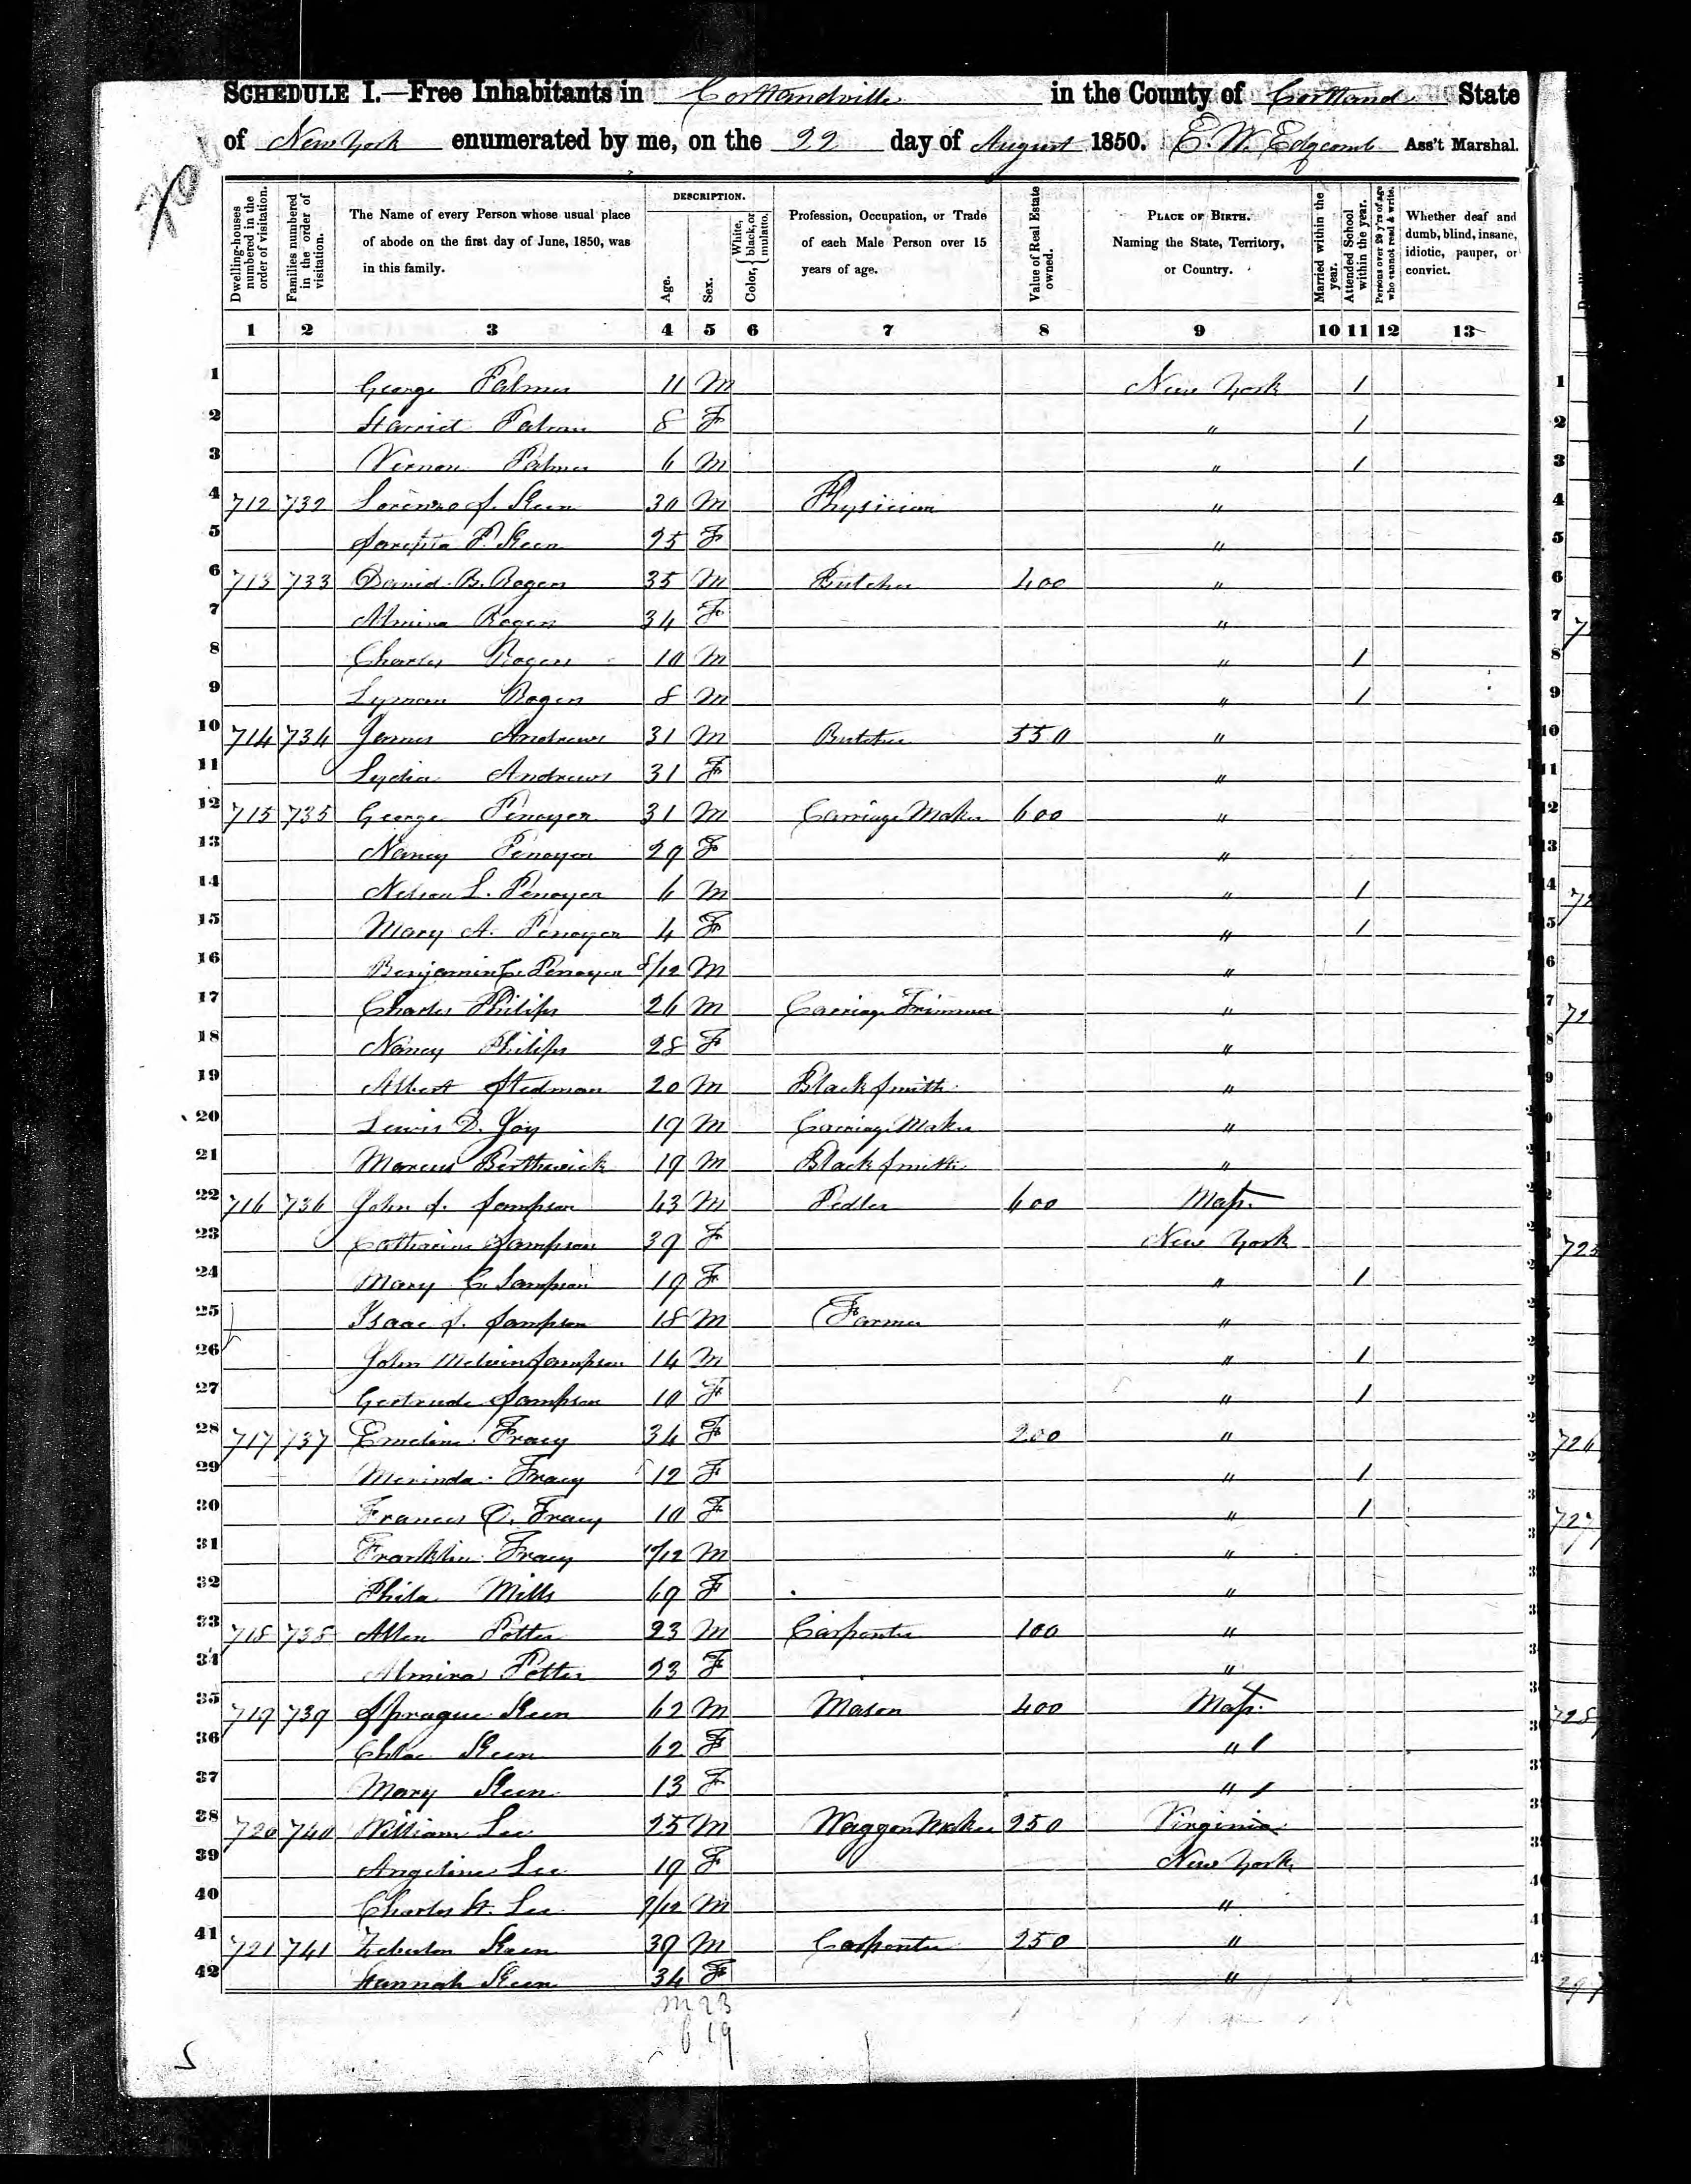 SCHEDULE I.—Free Inhabitants in Cortlandville in the County of Cortland State
of New York enumerated by me, on the 22 day of August 1850. E. W. Edgcomb Ass't Marshal.
Dwelling-houses numbered in the order of visitation.
Families numbered in the order of visitation.
The Name of every Person whose usual place of abode on the first day of June, 1850, was in this family.
DESCRIPTION.
Age.
Sex.
Color, { White, black, or mulatto.
Profession, Occupation, or Trade of each Male Person over 15 years of age.
Value of Real Estate owned.
PLACE OF BIRTH. Naming the State, Territory, or Country.
Married within the year.
Attended School within the year.
Persons over 20 y'rs of age who cannot read & write.
Whether deaf and dumb, blind, insane, idiotic, pauper, or convict.
1 2 3 4 5 6 7 8 9 10 11 12 13
1 George Palmer 11 M New York 1
2 Harriet Palmer 8 F " 1
3 Vernon Palmer 6 M " 1
4 712 732 Lorenzo J. 30 M Physician "
5 P. 25 F "
6 713 733 David B. Rogers 35 M Butcher 400 "
7 Almira Rogers 34 F "
8 Charles Rogers 10 M " 1
9 Lyman Rogers 8 M " 1
10 714 734 James Andrews 31 M Butcher 550 "
11 Lydia Andrews 31 F "
12 715 735 George Penoyer 31 M Carriage Maker 600 "
13 Nancy Penoyer 29 F "
14 Nelson L. Penoyer 6 M " 1
15 Mary A. Penoyer 4 F " 1
16 Benjamin C. Penoyer 8/12 M "
17 Charles Philips 26 M Carriage Trimmer "
18 Nancy Philips 28 F "
19 Albert Stedman 20 M Black Smith "
20 Lewis D. Joy 19 M Carriage Maker "
21 Marcus Berthwick 19 M Black Smith "
22 716 736 John S. Sampson 43 M Pedler 600 Mass.
23 Catharine Sampson 39 F New York
24 Mary C. Sampson 19 F " 1
25 Isaac S. Sampson 18 M Farmer "
26 John Melvin Sampson 14 M " 1
27 Gertrude Sampson 10 F " 1
28 717 737 Emeline Tracy 34 F 200 "
29 Merinda Tracy 12 F " 1
30 Frances C. Tracy 10 F " 1
31 Franklin Tracy M "
32 Phila Mills 69 F "
33 718 738 Allen Potter 23 M Carpenter 100 "
34 Almira Potter 23 F "
35 719 739 Sprague 62 M Mason 400 Mass.
36 Chloe 62 F "
37 Mary 13 F "
38 720 740 William Lee 25 M Waggon Maker 250 Virginia
39 Angeline Lee 19 F New York
40 Charles H. Lee M "
41 721 741 39 M Carpenter 250 "
42 Hannah 34 F "
M 23
19